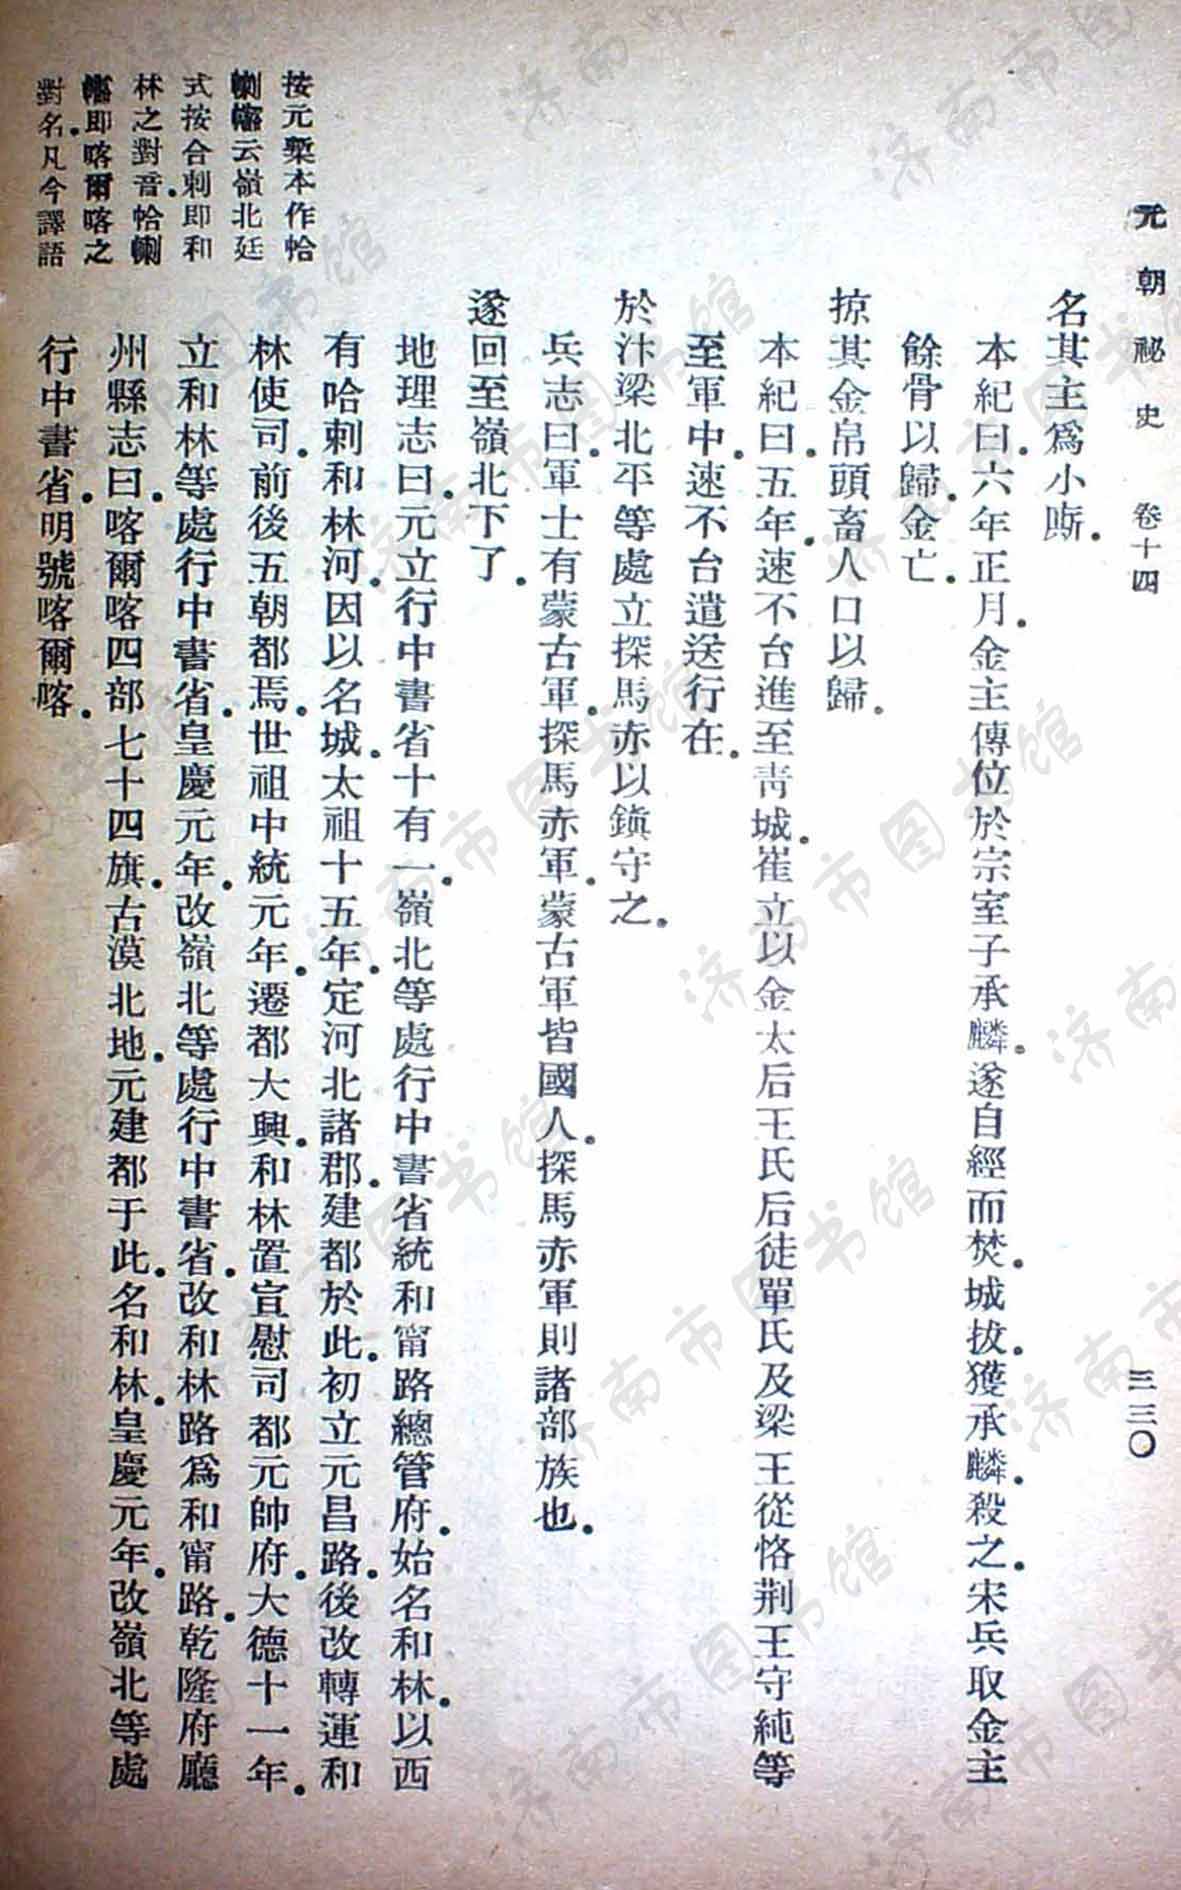 元朝祕史 卷十四 三三〇
名其主爲小廝。
本紀曰。六年正月。金主傳位於宗室子承麟。遂自經而焚。城拔。獲承麟。殺之。宋兵取金主
餘骨以歸。金亡。
掠其金帛頭畜人口以歸。
本紀曰。五年。速不台進至靑城。崔立以金太后王氏后徒單氏及梁王從恪荆王守純等
至軍中。速不台遣送行在。
於汴梁北平等處立探馬赤以鎭守之。
兵志曰。軍士有蒙古軍。探馬赤軍。蒙古軍皆國人。探馬赤軍則諸部族也。
遂回至嶺北下了。
地理志曰。元立行中書省十有一。嶺北等處行中書省統和甯路總管府。始名和林。以西
有哈剌和林河。因以名城。太祖十五年。定河北諸郡。建都於此。初立元昌路。後改轉運和
林使司。前後五朝都焉。世祖中統元年。遷都大興。和林置宣慰司都元帥府。大德十一年。
立和林等處行中書省。皇慶元年。改嶺北等處行中書省。改和林路爲和甯路。乾隆府廳
州縣志曰。喀爾喀四部七十四旗。古漠北地。元建都于此。名和林。皇慶元年。改嶺北等處
行中書省。明號喀爾喀。
按元槧本作恰
云嶺北廷
式按合剌卽和
林之對音。恰
卽喀爾喀之
對名。凡今譯語
济南市图书馆